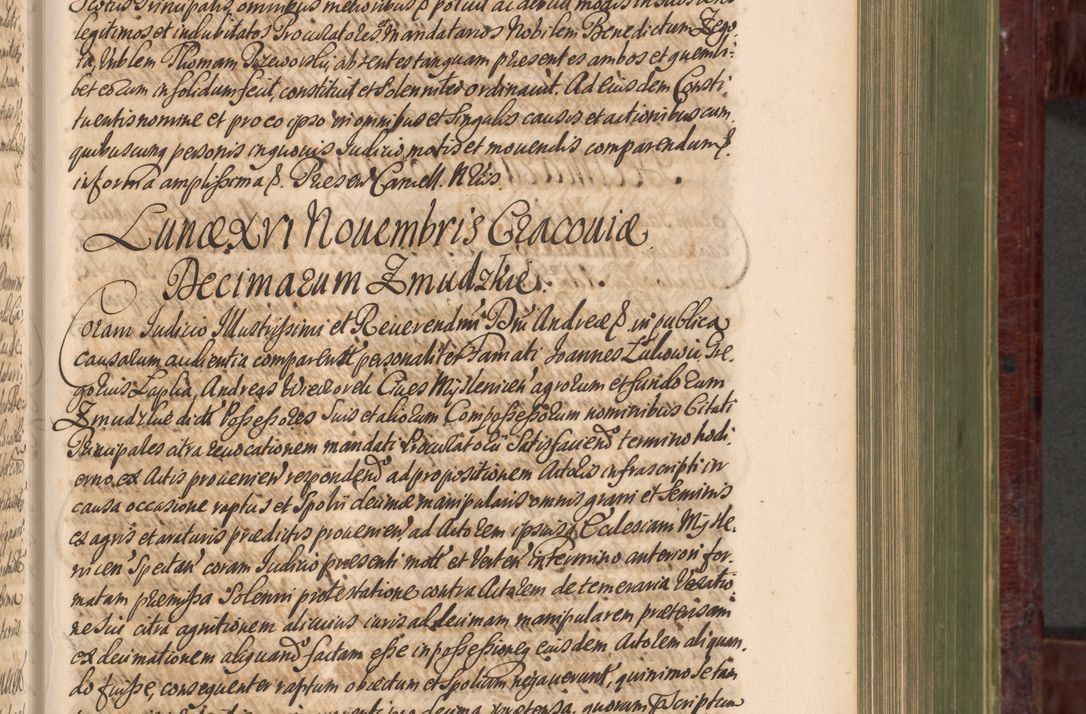 legitimos et indubitatos Procuratores et Mandatarios Nobilem Benedictum Zego
ta, Nblem Thomam Rzeworski, absentes tanquam presentes ambos et quemli-
bet eorum in solidum fecit, constituit et solenniter ordinavit. Ad eiusdem Consti,
tuentis nomine et pro eo ipso in omnibus et singulis causis et actionibus cum
quibuscunq personis inquovis Iudicio motis et movendis comparendum &.
in forma amplissima &. Presen Cancell. Nriis.
Lunæ XVI Nouembris Cracouiæ
Decimarum Zmudzkie.
Coram Iudicio Illustrissimi et Reuerendmi Dni Andreæ & in publica
causarum audientia comparentt personaliter Famati Ioannes Lukowic Gre,
gorius Luplia, Andreas Wieczorek Ciues Myslenicen agrorum et fundorum
Zmudzkie dictt Possessores Suis et aliorum Compossessorum nominibus Citati
Principales citra reuocationem mandati Procuratorii Satisfaciend termino hodi,
erno, ex Actis provenien respondend ad propositionem Actoris infrascripti in
causa occasione raptus et Spolii decimæ manipularis omnis grani et seminis
ex agris et araturis prædictis provenien, ad Actorem ipsiusq Ecclesiam Mysle
nicen Spectan coram Iudicio presenti mott et Verten in termino anteriori for,
matam præmissa Solenni protestatione contra Actorem de temeraria Vexatio
ne sui citra agnitionem alicuius iuris ad decimam manipularem prætensam
ex decimationem aliquand factam esse in possessioneq eiusdem Actorem aliquan,
do fuisse, consequenter raptum obiectum et spolium negauerunt, quinimo se tan